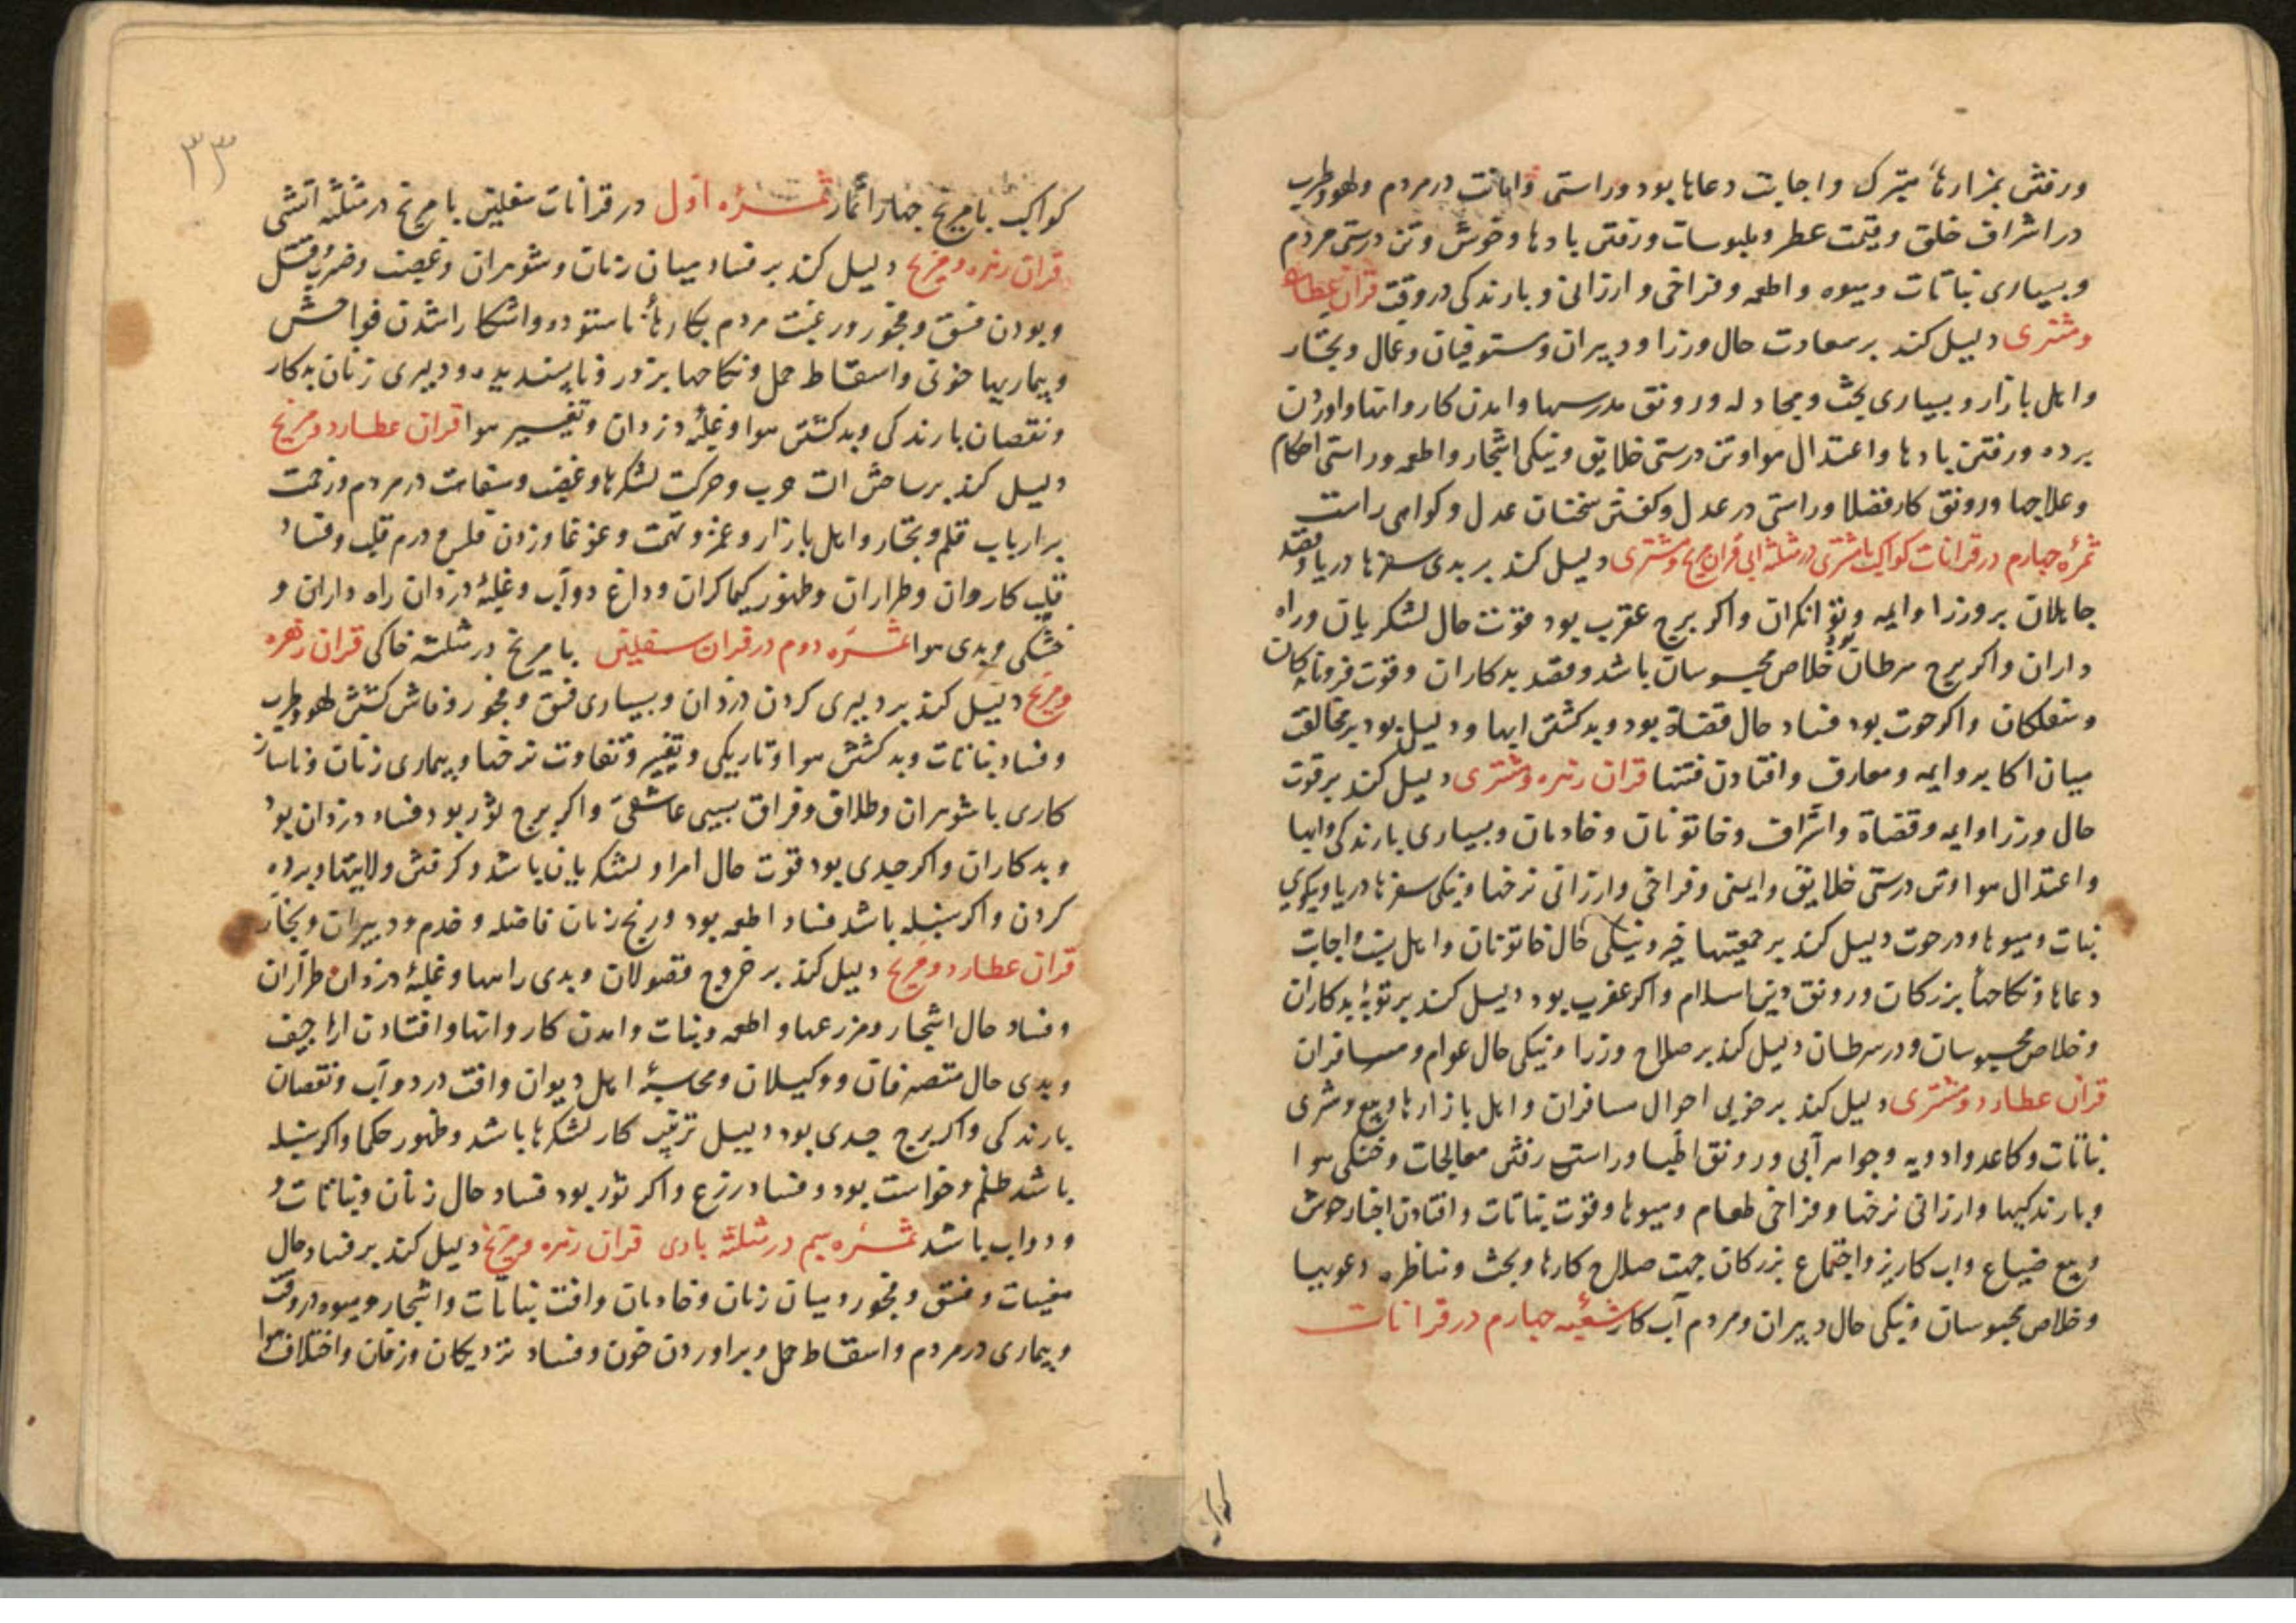 ورفتن بمزارهاء متبرک واجابت دعاها بود وراستی وامانت در مردم ولهو وطرب
در اشراف خلق وقیمت عطر وملبوسات ورفتن بادها وخوش وتن درستی مردم
وبسیاری نباتات ومیوه واطعمه وفراخی وارزانی وبارندکی در وقت قران عطارد
ومشتری دلیل کند بر سعادت حال وزرا ودبیران ومستوفیان وعمال وتجار
واهل بازار وبسیاری بحث ومجادله ورونق مدرسها وامدن کاروانها واوردن
برده ورفتن بادها واعتدال هوا وتن درستی خلایق ونیکی اشجار واطعمه وراستی احکام
وعلاجها ورونق کار فضلا وراستی در عدل وکفتن سخنان عدل وکواهی راست
ثمره چهارم در قرانات کواکب با مشتری در مثلثه ابی قران مریخ ومشتری دلیل کند بر بدی سفرها دریا وقصد
جاهلان بر وزرا وایمه وتوانکران واکر برج عقرب بود قوت حال لشکریان وراه
داران واکر برج سرطان بود خلاص محبوسان باشد وقصد بدکاران وقوت فرومایه کان
واکر حوت بود فساد حال قضاة بود وبد کشتن ابها ودلیل بود بر مخالفت
میان اکابر وایمه ومعارف وافتادن فتنها قران زهره ومشتری دلیل کند بر قوت
حال وزرا وایمه وقضاة واشراف وخاتونان وخادمان وبسیاری بارندکی وابها
واعتدال هوا وتن درستی خلایق وایمنی وفراخی وارزانی نرخها ونیکی سفرها دریا ونیکوی
نبات ومیوها ودر حوت دلیل کند بر جمعیتها خیر ونیکی حال خاتونان واهل بیت واجابت
دعاها ونکاحهأ بزرکان ورونق دین اسلام واکر عقرب بود دلیل کند بر توبۀ بدکاران
وخلاص محبوسان ودر سرطان دلیل کند بر صلاح وزرا ونیکی حال عوام ومسافران
قران عطارد ومشتری دلیل کند بر خوبی احوال مسافران واهل بازارها وبیع وشری
نباتات وکاغد وادویه وجواهر آبی ورونق اطبا وراستی رفتن معالجات وخنکی هوا
وبارندکیها وارزانی نرخها وفراخی طعام ومیوها وقوت نباتات وافتادن اخبار خوش
وبیع ضیاع واب کاریز واجتماع بزرکان جهت صلاح کارها وبحث ومناظره دعویها
وخلاص محبوسان ونیکی حال دبیران ومردم آب کار شعبۀ چهارم در قرانات
کواکب
۳۳
کواکب با مریخ چهار اثمار ثمره اول در قرانات سفلیین با مریخ در مثلثه اتشی
قران زهره ومریخ دلیل کند بر فساد میان زنان وشوهران وغضب وضرب وقتل
وبودن فسق وفجور ورغبت مردم بکارهأ ناستوده واشکارا شدن فواحش
وبیماریها خونی واسقاط حمل ونکاحها بزور وناپسندیده ودلیری زنان بدکار
ونقصان بارندکی وبد کشتن هوا وغلبۀ دزدان وتغییر هوا قران عطارد ومریخ
دلیل کند بر مباحثات حرب وحرکت لشکرها وغضب وسفاهت در مردم وزحمت
بر ارباب قلم وتجار واهل بازار وغمز وتهمت وغوغا وزدن فلس ودرم قلب وفساد
قلب کاران وطراران وظهور کیماکران وداغ دوآب وغلبۀ دزدان راه داران و
خشکی وبدی هوا ثمره دوم در قران سفلیین با مریخ در مثلثه خاکی قران زهره
ومریخ دلیل کند بر دلیری کردن دزدان وبسیاری فسق وفجور وفاش کشتن لهو وطرب
وفساد نباتات وبد کشتن هوا وتاریکی وتغییر وتفاوت نرخها وبیماری زنان وناساز
کاری با شوهران وطلاق وفراق بسبب عاشقی واکر برج ثور بود فساد دزدان بود
وبدکاران واکر جدی بود قوت حال امرا ولشکریان باشد وکرفتن ولایتها وبرده
کردن واکر سنبله باشد فساد اطعمه بود ورنج زنان فاضله وخدم ودبیران وتجار
قران عطارد ومریخ دلیل کند بر خروج فضولان وبدی راهها وغلبۀ دزدان وطرآران
وفساد حال اشجار ومزرعها واطعمه ونبات وامدن کاروانها وافتادن اراجیف
وبدی حال متصرفان ووکیلان ومحاسبۀ اهل دیوان وافت در دوآب ونقصان
بارندکی واکر برج جدی بود دلیل ترتیب کار لشکرها باشد وظهور حکما واکر سنبله
باشد ظلم وخواست بود وفساد زرع واکر ثور بود فساد حال زنان ونباتات و
ودواب باشد ثمره سیم در مثلثه بادی قران زهره ومریخ دلیل کند بر فساد حال
مغنیات وفسق وفجور ومیان زنان وخادمان وافت نباتات واشجار ومیوه در وقت
وبیماری در مردم واسقاط حمل وبراوردن خون وفساد نزدیکان وزفان واختلاف هوا